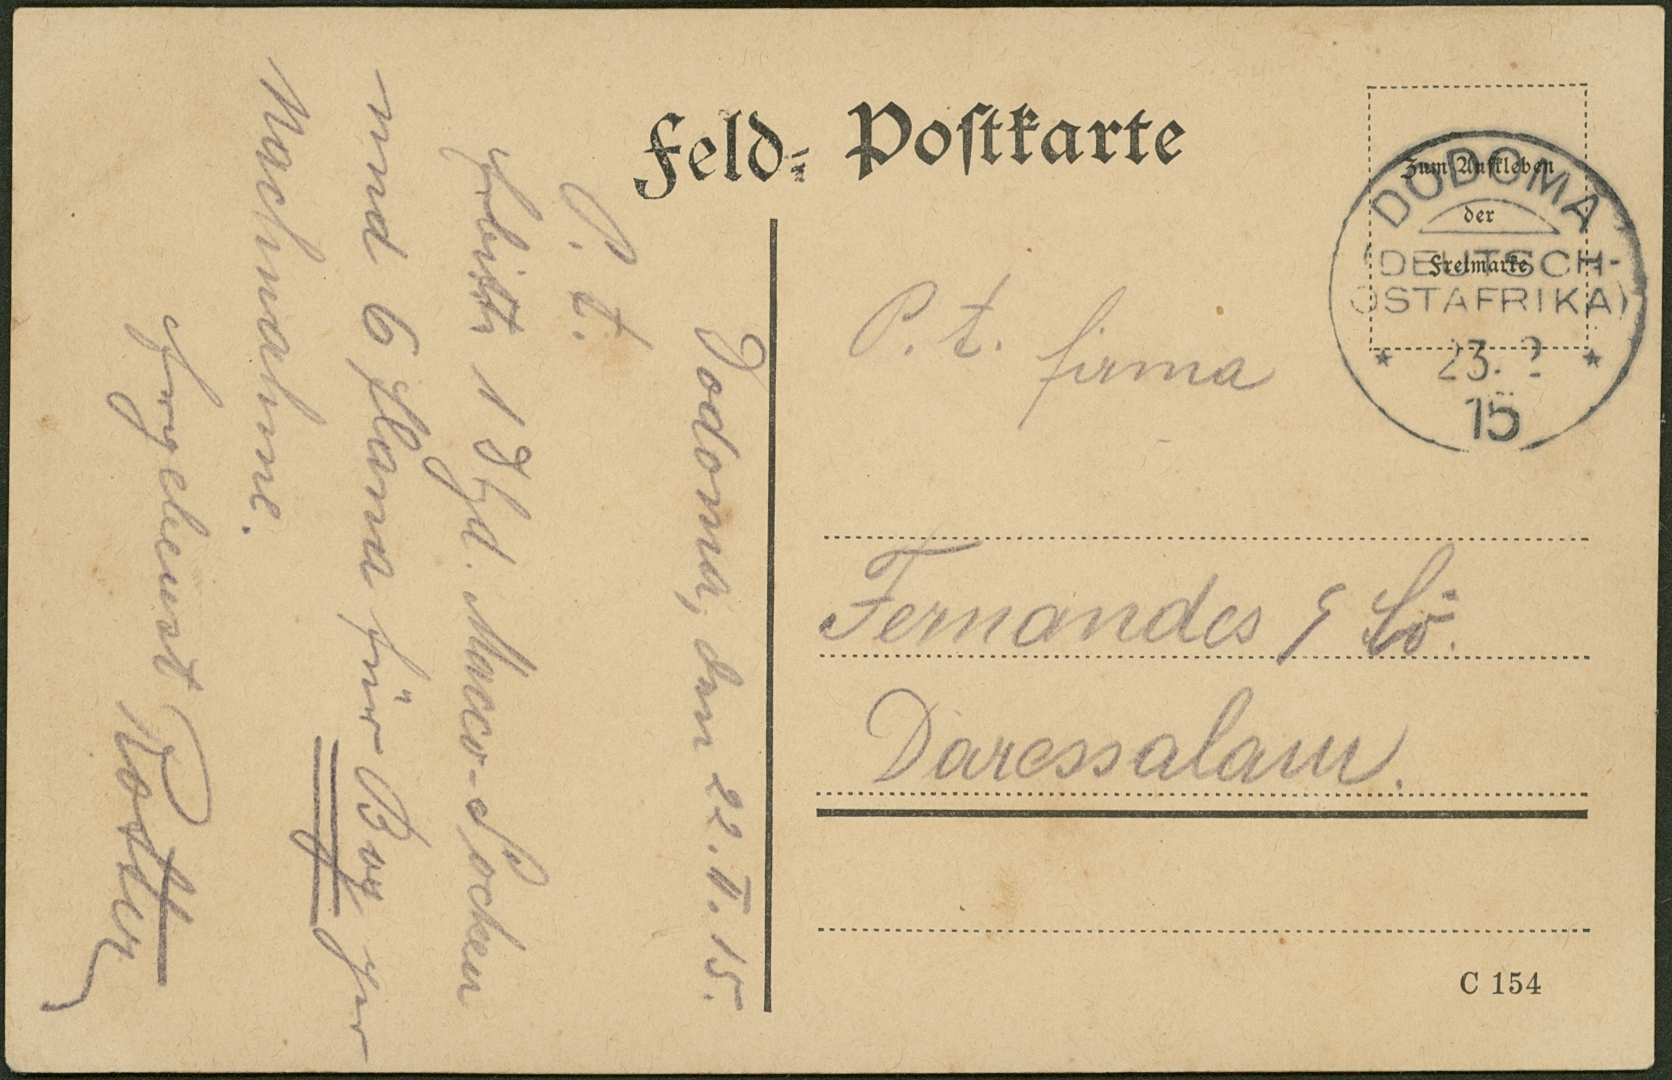 Feld- Postkarte
Zum Aufkleben
der
Freimarke
DODOMA
(DEUTSCH-
OSTAFRIKA)
* 23. 2 *
15
P. t. firma
Fernandes & Co.
Daressalam.
C 154
Dodoma, den 22. II. 15.
P. t.
Erbitte 1 Dtzd. Macco-Socken
und 6 Hama für Boy per
Nachnahme.
Ergebenst Rotter